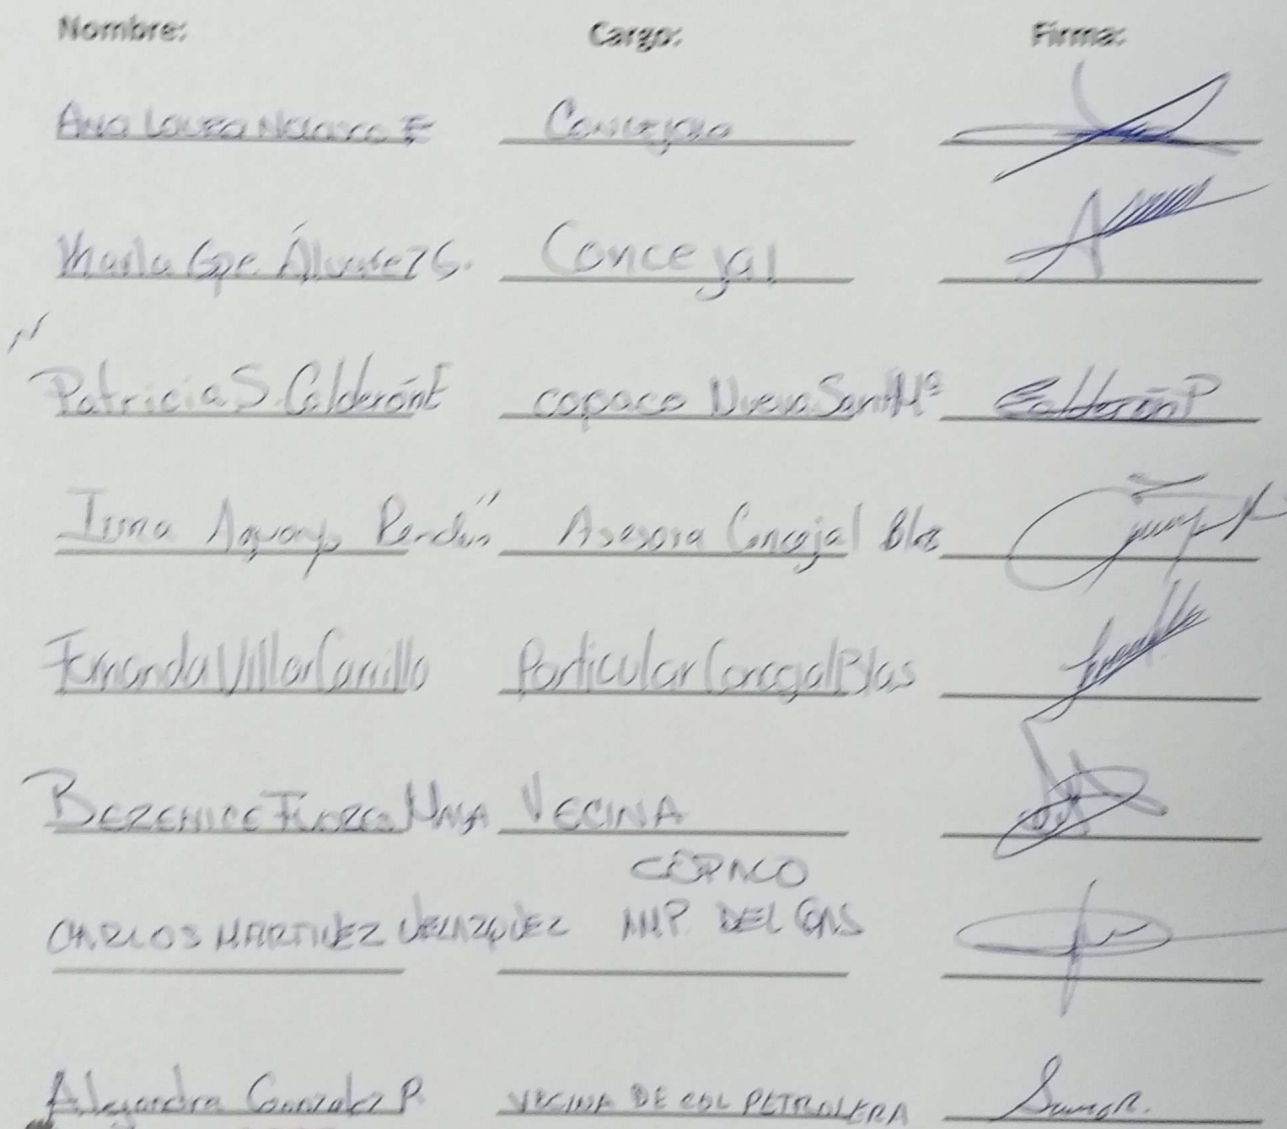 Nombre: Cargo: Firma:
Ana Laura Nolasco F Concejala
María Gpe. Álvarez S. Concejal
Patricia S. Calderón E copaco Nueva Santa Mª Calderón P
Irma Aguayo Rendón Asesora Concejal Blas
Fernanda Villar Carrillo Particular Concejal Blas
BERENICE FLORES MAYA VECINA
COPACO
CARLOS MARTINEZ VELAZQUEZ AMP. DEL GAS
Alejandra Gonzalez P. VECINA DE COL PETROLERA